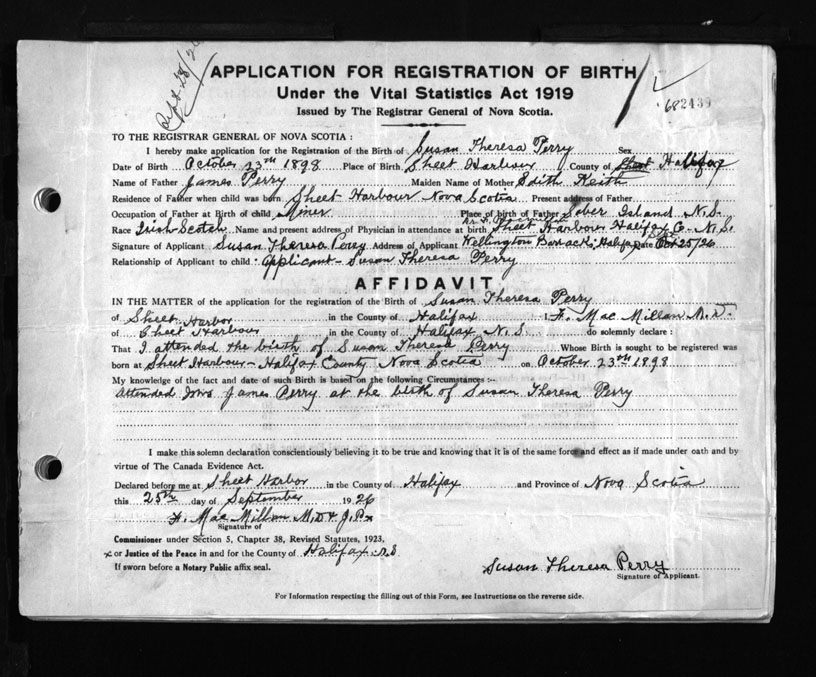 Sept 28/26
APPLICATION FOR REGISTRATION OF BIRTH
Under the Vital Statistics Act 1919
682439
Issued by The Registrar General of Nova Scotia.
TO THE REGISTRAR GENERAL OF NOVA SCOTIA :
I hereby make application for the Registration of the Birth of Susan Theresa Perry Sex
Date of Birth October 23rd 1898 Place of Birth Sheet Harbour County of Halifax
Name of Father James Perry Maiden Name of Mother Edith Keith
Residence of Father when child was born Sheet Harbour Nova Scotia Present address of Father
Occupation of Father at Birth of child Miner Place of birth of Father Sober Island N.S.
Race Irish Scotch Name and present address of Physician in attendance at birth Sheet Harbour Halifax Co. N.S.
Signature of Applicant Susan Theresa Perry Address of Applicant Wellington Barracks, Halifax Date 25/26
Relationship of Applicant to child Applicant - Susan Theresa Perry
AFFIDAVIT
IN THE MATTER of the application for the registration of the Birth of Susan Theresa Perry
of Sheet Harbor in the County of Halifax I, Mac Millan M.D.
of Sheet Harbour in the County of Halifax N.S. do solemnly declare :
That I attended the birth of Susan Theresa Perry Whose Birth is sought to be registered was
born at Sheet Harbour - Halifax County Nova Scotia on October 23rd 1898
My knowledge of the fact and date of such Birth is based on the following Circumstances :-
Attended Mrs James Perry at the birth of Susan Theresa Perry
I make this solemn declaration conscientiously believing it to be true and knowing that it is of the same force and effect as if made under oath and by
virtue of The Canada Evidence Act.
Declared before me at Sheet Harbor in the County of Halifax and Province of Nova Scotia
this 25th day of September 1926
Mac Millan M.D & J.P.
Signature of
Commissioner under Section 5, Chapter 38, Revised Statutes, 1923,
x or Justice of the Peace in and for the County of Halifax N.S
If sworn before a Notary Public affix seal.
Susan Theresa Perry
Signature of Applicant.
For Information respecting the filling out of this Form, see Instructions on the reverse side.